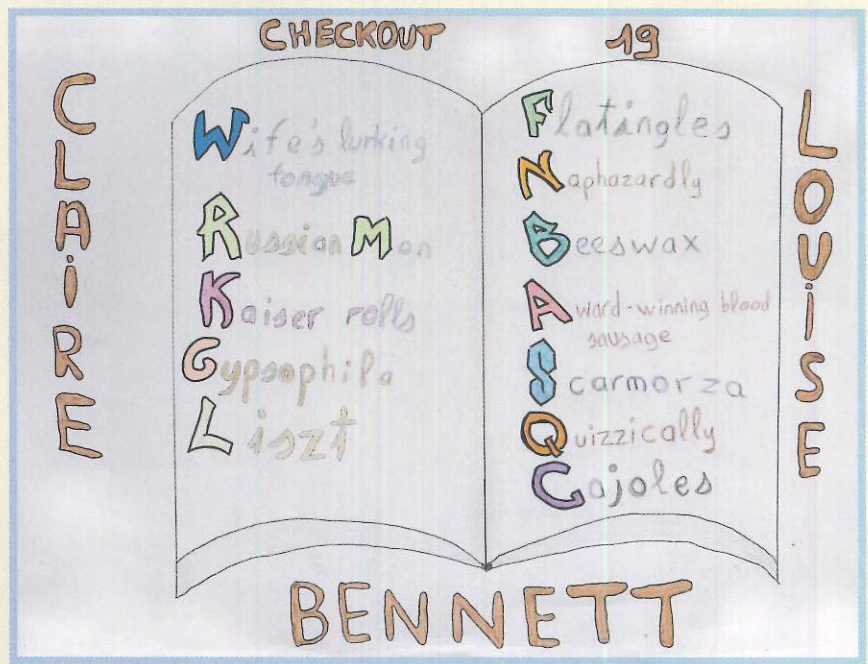 CHECKOUT 19
CLAIRE
LOUISE
Wife's lurking
tongue
Russian Man
Kaiser rolls
Gypsophila
Liszt
Flatingles
Naphazardly
Beeswax
Award-winning blood
sausage
Scarmorza
Quizzically
Cajoles
BENNETT